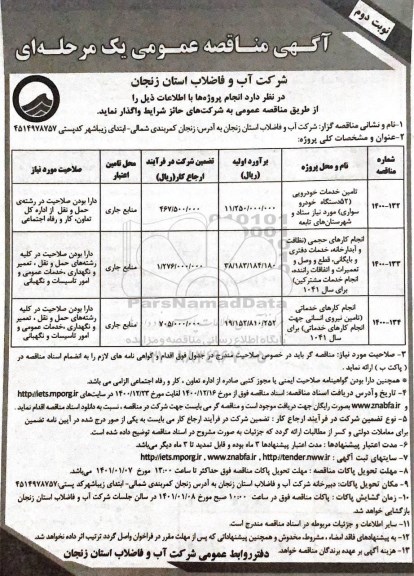 نوبت دوم
آگهی مناقصه عمومی یک مرحله‌ای
شرکت آب و فاضلاب استان زنجان
در نظر دارد انجام پروژه‌ها با اطلاعات ذیل را
از طریق مناقصه عمومی به شرکت‌های حائز شرایط واگذار نماید.
۱- نام و نشانی مناقصه گزار: شرکت آب و فاضلاب استان زنجان به آدرس: زنجان کمربندی شمالی- ابتدای زیباشهر کدپستی ۴۵۱۴۹۷۸۷۵۷
۲- عنوان و مشخصات کلی پروژه:
شماره مناقصه | نام و محل پروژه | برآورد اولیه (ریال) | تضمین شرکت در فرآیند ارجاع کار(ریال) | محل تامین اعتبار | صلاحیت مورد نیاز
۱۴۰۰-۱۳۲ | تامین خدمات خودرویی (۵۲دستگاه خودرو سواری) مورد نیاز ستاد و شهرستان‌های تابعه | ۱۱/۲۵۰/۰۰۰/۰۰۰ | ۴۶۷/۵۰۰/۰۰۰ | منابع جاری | دارا بودن صلاحیت در رشته‌ی حمل و نقل از اداره کل تعاون، کار و رفاه اجتماعی
۱۴۰۰-۱۳۳ | انجام کارهای حجمی (نظافت و آبدارخانه، خدمات دفتری و بایگانی، قطع و وصل و تعمیرات و اتفاقات راننده، انجام خدمات مشترکین) برای سال ۱۴۰۱ | ۳۸/۱۸۳/۱۸۴/۱۸۰ | ۱/۲۷۶/۰۰۰/۰۰۰ | منابع جاری | دارا بودن صلاحیت در کلیه رشته‌های حمل و نقل، تعمیر و نگهداری، خدمات عمومی و امور تاسیسات و نگهبانی
۱۴۰۰-۱۳۴ | انجام کارهای خدماتی (تامین نیروی انسانی جهت انجام کارهای خدماتی) برای سال ۱۴۰۱ | ۱۹/۱۵۳/۸۱۰/۲۵۲ | ۷۰۵/۰۰۰/۰۰۰ | منابع جاری | دارا بودن صلاحیت در کلیه رشته‌های حمل و نقل، تعمیر و نگهداری خدمات عمومی و امور تاسیسات و نگهبانی
۳- صلاحیت مورد نیاز: مناقصه گر باید در خصوص صلاحیت مندرج در جدول فوق اقدام و گواهی نامه های لازم را به انضمام اسناد مناقصه در ( پاکت ب ) ارائه نماید .
* همچنین دارا بودن گواهینامه صلاحیت ایمنی با مجوز کتبی صادره از اداره تعاون ، کار و رفاه اجتماعی الزامی می باشد.
۴- تاریخ و آدرس دریافت اسناد مناقصه: اسناد مناقصه فوق از مورخ ۱۴۰۰/۱۲/۱۶ لغایت مورخ ۱۴۰۰/۱۲/۲۳ در سایتهای http://iets.mporg.ir
و www.znabfa.ir بصورت رایگان جهت دریافت موجود است و مناقصه گر می بایست جهت شرکت در مناقصه ، نسبت به دانلود اسناد مناقصه اقدام نماید.
۵- نوع تضمین شرکت در فرآیند ارجاع کار : تضمین شرکت در فرآیند ارجاع کار می بایست به یکی از صور درج شده در آیین نامه تضمین
برای معاملات دولتی و کسر از مطالبات ارائه گردد که جزئیات به صورت مشروح در اسناد مناقصه توضیح داده شده است.
۶- مدت اعتبار پیشنهادها : مدت اعتبار پیشنهادها ۳ ماه بوده و قابل تمدید تا ۳ ماه دیگر می‌باشد.
۷- سایتهای ثبت آگهی : http://iets.mporg.ir , www.znabfa.ir , http://tender.nww.ir
۸- مهلت تحویل پاکات مناقصه : مهلت تحویل پاکات مناقصه فوق حداکثر تا ساعت ۱۳:۰۰ مورخ ۱۴۰۱/۰۱/۰۷ می‌باشد.
۹- مکان تحویل پاکات: دبیرخانه شرکت آب و فاضلاب استان زنجان به آدرس زنجان کمربندی شمالی- ابتدای زیباشهر کد پستی ۴۵۱۴۹۷۸۷۵۷
۱۰- زمان گشایش پاکات : پاکات مناقصه فوق در ساعت ۱۰:۰۰ صبح مورخ ۱۴۰۱/۰۱/۰۸ در سالن جلسات شرکت آب و فاضلاب استان زنجان
بازگشایی خواهد شد.
۱۱- سایر اطلاعات و جزئیات مربوطه در اسناد مناقصه مندرج است.
۱۲- به پیشنهادهای فاقد امضاء ، مشروط، مخدوش و همچنین پیشنهاداتی که پس از مهلت مقرر در فراخوان واصل گردد ترتیب اثر داده نخواهد شد.
۱۳- هزینه آگهی بر عهده برندگان مناقصه خواهد.
دفتر روابط عمومی شرکت آب و فاضلاب استان زنجان